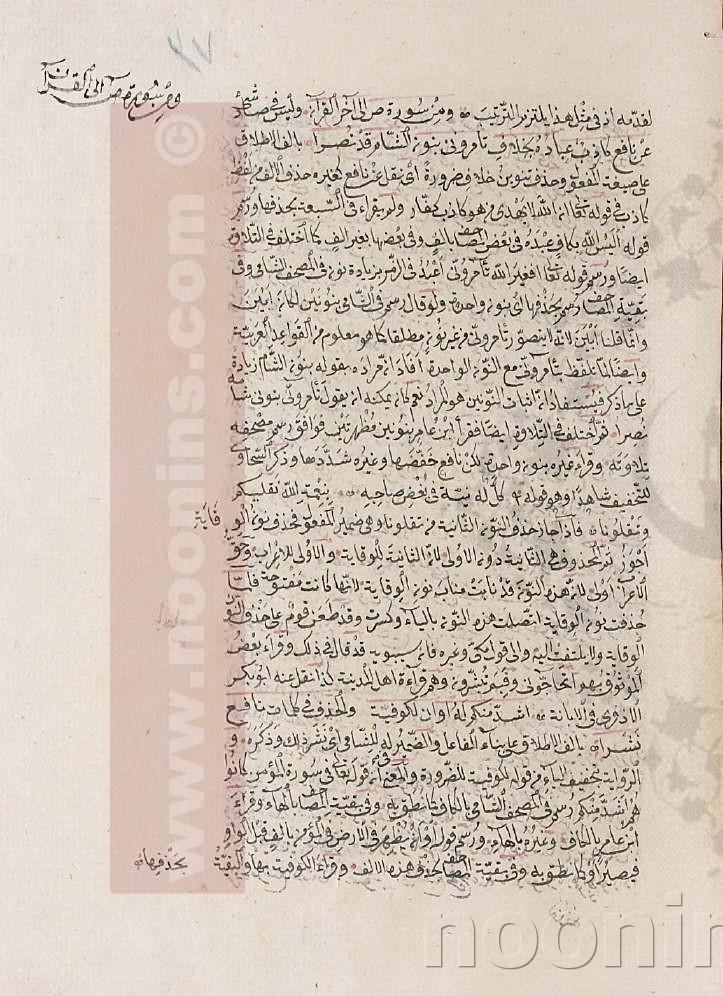 ٤٧
ومن سورة ص الى آخر القرآن
لقدمه اذ في مثل هذا يلتزم الترتيب ومن سورة ص الى آخر القرآن وليس في صاد شئ
عن نافع كاذب عباده بخلاف تامروني بنون الشام قد نصرا بالف الاطلاق
على صيغة المفعول وحذف تنوين خلاف ضرورة اى نقل عن نافع كغيره حذف الالف من لفظ
كاذب في قوله تعالى ان الله لا يهدى من هو كاذب كفار ولم يقراء في السبعة بحذفها ورسم
قوله اليس الله بكاف عبده في بعض المصاحف بالف وفي بعضها بغير الف كما اختلف في التلاوة
ايضا ورسم قوله تعالى افغير الله تامرونى اعبد في الزمر بزيادة نون في المصحف الشامى وفى
بقية المصاحف رسم بحذفها اى بنون واحدة ولو قال رسم في الشامى بنونين لكان ابين
وانما قلنا ابين لانه لا يتصور تامرونى من غير نون مطلقا كما هو معلوم من القواعد العربية
وايضا لما تلفظ بتامرونى مع النون الواحدة افاد ان مراده بقوله بنون الشام زيادة
على ما ذكر فيستفاد ان اثبات النونين هو المراد نعم كان يمكنه ان يقول تامرونى بنونى شامه
نصرا ثم اختلف في التلاوة ايضا فقرأ ابن عامر بنونين مظهرتين فوافق رسم مصحفه
تلاوته وقراء غيره بنون واحدة لكن نافع خففها وغيره شددها وذكر السخاوى
للتخفيف شاهدا وهو قوله كل له نية في بغض صاحبه بنعمة الله نقليكم
وتقلونا فاذا جاز حذف النون الثانية من تقلوننا وهى ضمير المفعول فحذف نون الوقاية
اجوز ثم المحذوف هى الثانية دون الاولى لان الثانية للوقاية والاولى للاعراب وحق
الاعراب اولى لان هذه النون قد نابت مناب نون الوقاية لانها كانت مفتوحة فلما
حذفت نون الوقاية اتصلت هذه النون بالياء وكسرت وقد طعن قوم على حذف النون
الوقاية ولا يلتفت اليه والى قول مكى وغيره فان سيبويه قد قال في ذلك وقراء بعض
الموثوق بهم اتحاجونى وفبم تبشرون وهم قراءة اهل المدينة كذا نقل عنه ابو بكر
الادفوى في الابانة اشد منكم له او ان لكوفية والحذف في كلمات نافع
نشرا بالف الاطلاق على بناء الفاعل والضمير له للشامى اى نشر ذلك وذكره و
الرواية تخفيف الياء من قوله لكوفية للضرورة والمعنى ان قوله تعالى في سورة المؤمن كانوا
هم اشد منكم رسم في المصحف الشامى بالكاف كما نطق به وفي بقية المصاحف بالهاء وقراءة
ابن عامر بالكاف وغيره بالهاء ورسم قوله او ان يظهر في الارض في المؤمن بالف قبل الواو
فيصير او كما نطق به وفي بقية المصاحف بحذف هذه الالف وقراء الكوفية بها والبقية
بحذفها
© www.noonins.com
noonin